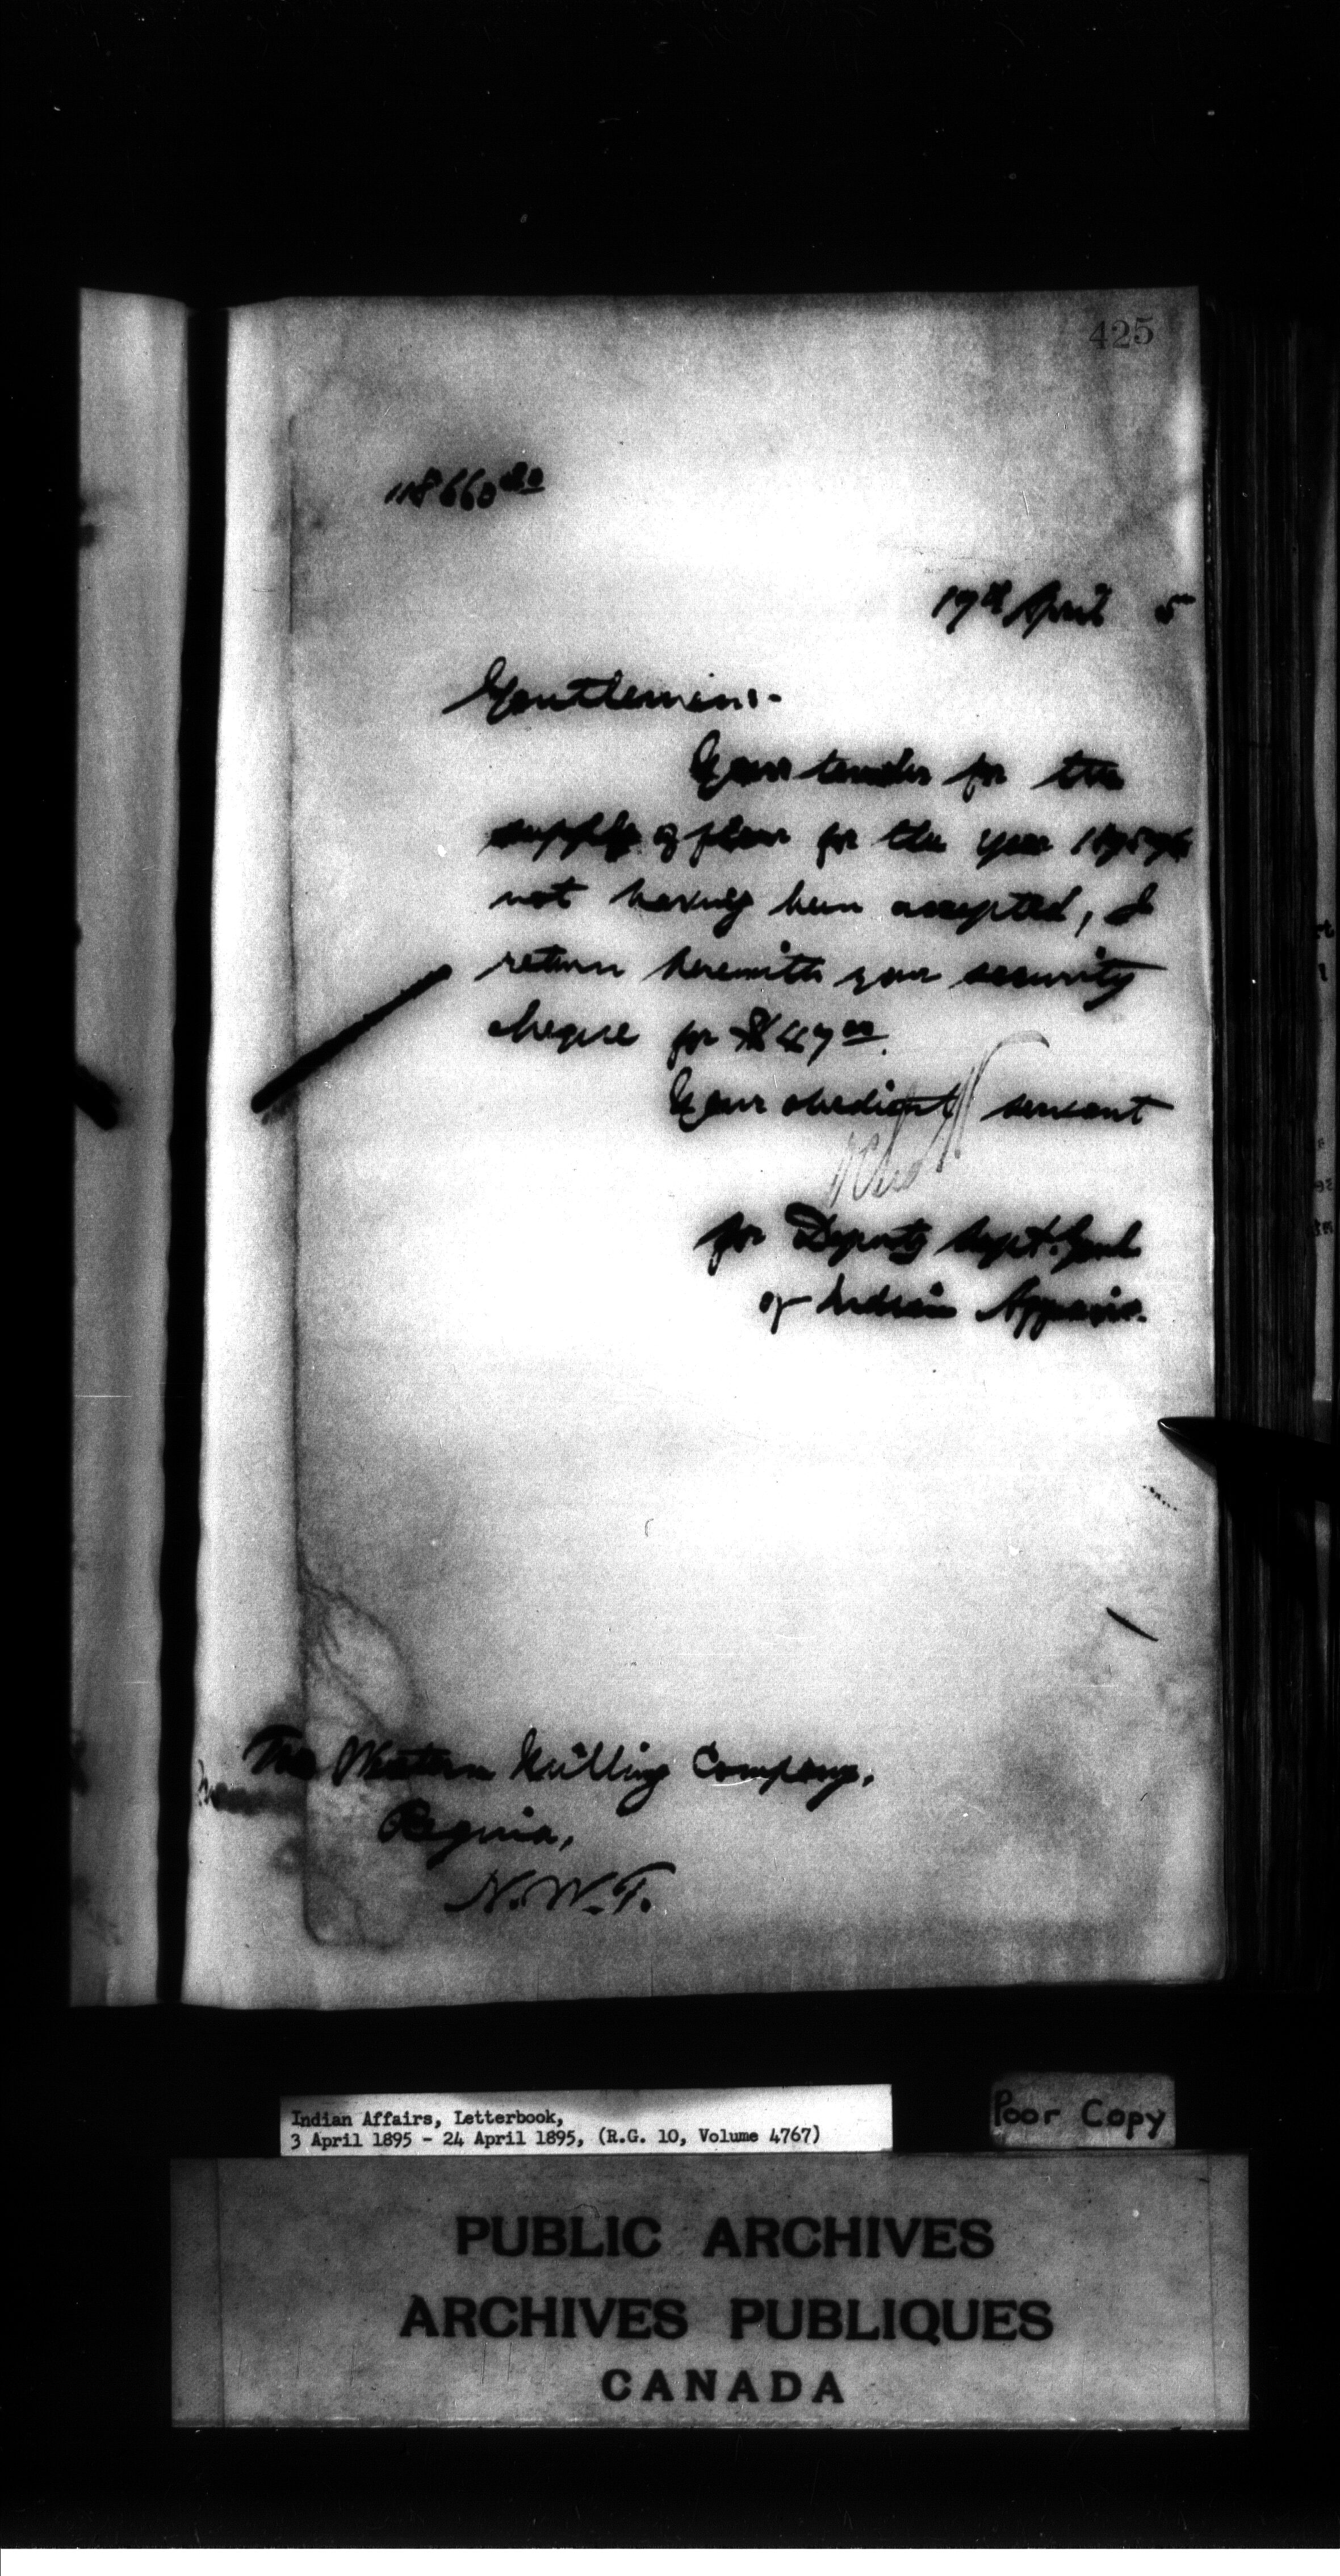 425
118660
17th April 5
Gentlemen:-
Your tender for the
supply of flour for the year 1895/96
not having been accepted, I
return herewith your security
cheque for $ 47 00.
Your obedient servant
for Deputy Supt. Genl
of Indian Affairs.
The Western Milling Company,
Regina,
N.W.T.
Indian Affairs, Letterbook,
3 April 1895 - 24 April 1895, (R.G. 10, Volume 4767)
Poor Copy
PUBLIC ARCHIVES
ARCHIVES PUBLIQUES
CANADA